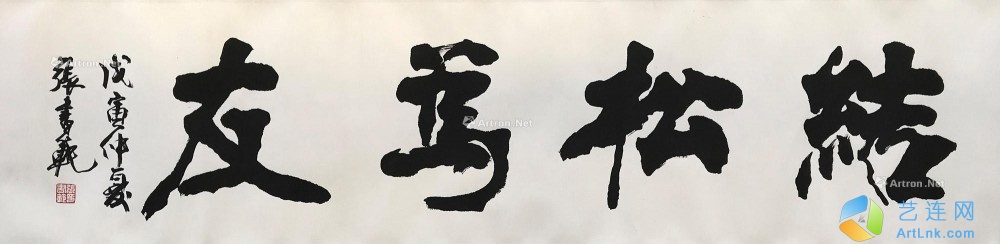 結松為友
戊寅仲夏
張書範
Artron.Net
Artron.Net
Artron.Net
艺连网
ArtLnk.com